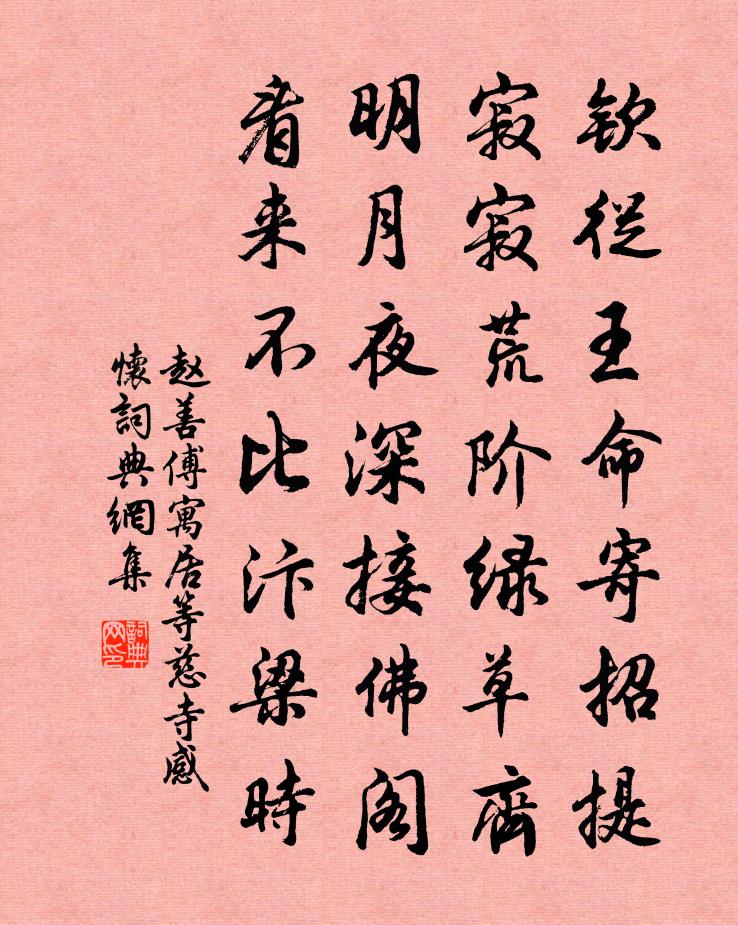 欽從王命寄招提
寂寂荒阶绿草齊
明月夜深接佛阁
看来不比汴梁時
赵善傅寓居等慈寺感
懷詞典網集
詞典
网印